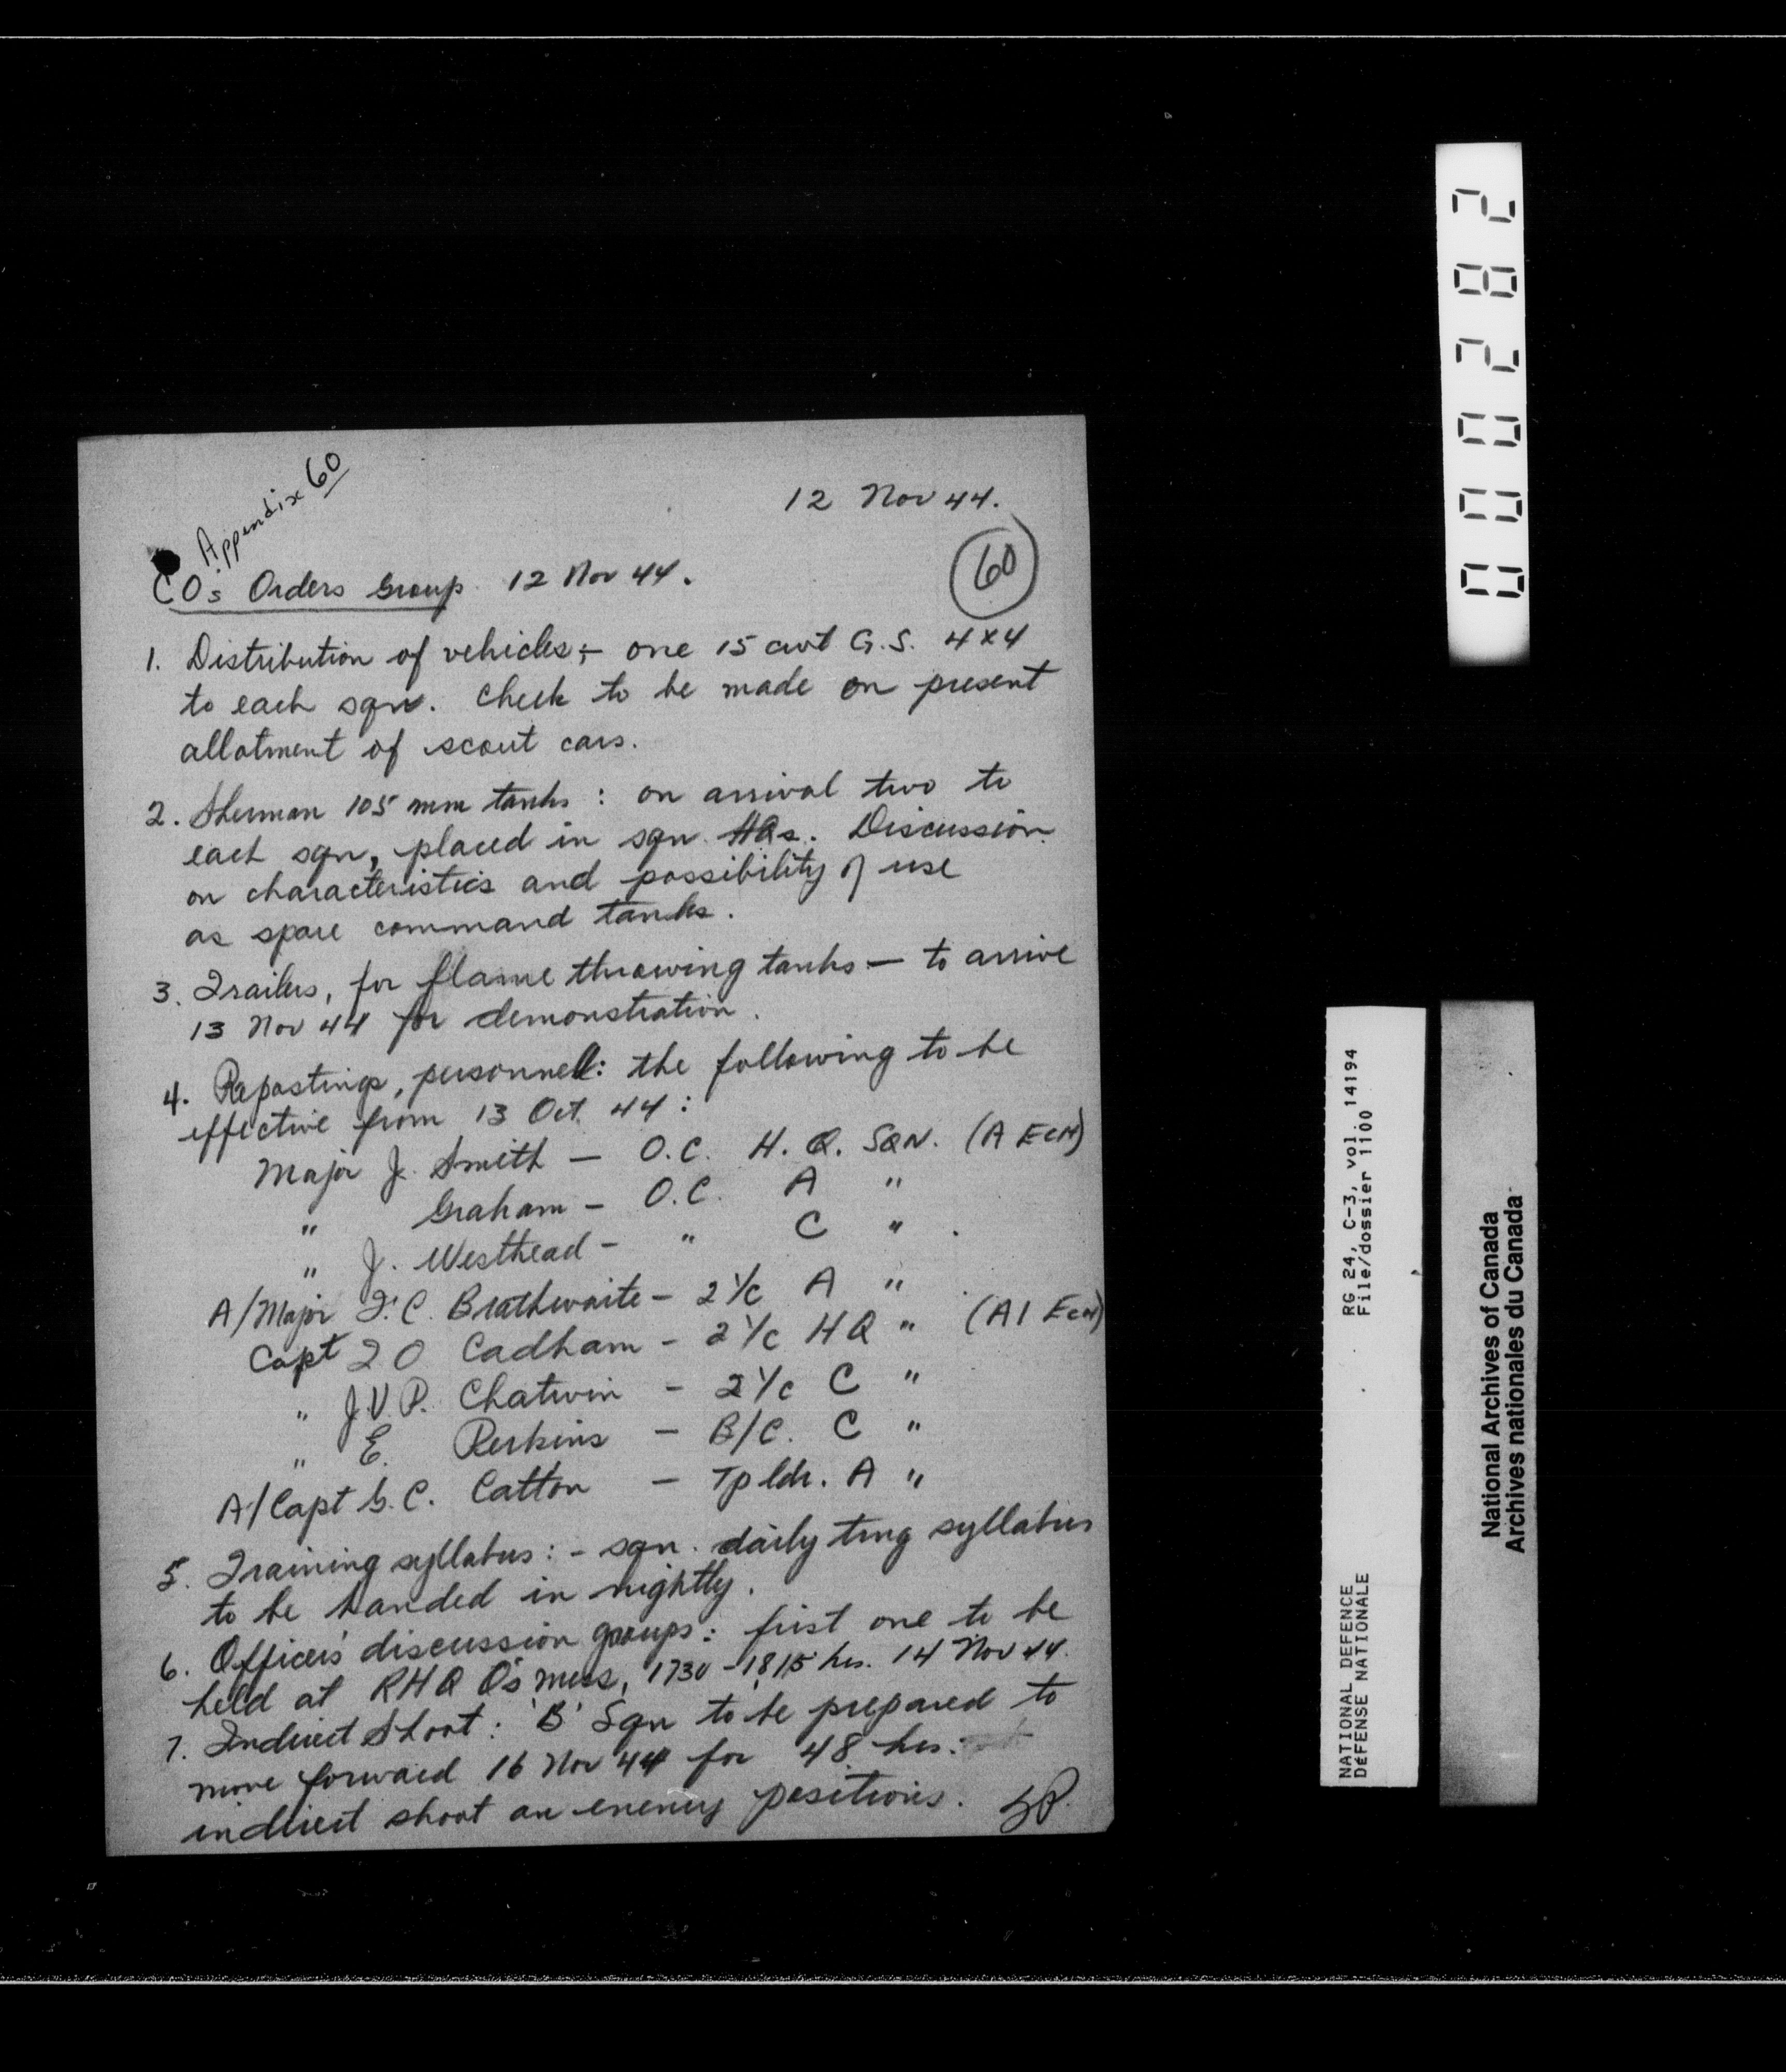 Appendix 60
12 Nov 44.
60
COs Orders Group 12 Nov 44.
1. Distribution of vehicles:- one 15 cwt G.S. 4x4
to each sqn. Check to be made on present
allotment of scout cars.
2. Sherman 105 mm tanks: on arrival two to
each sqn, placed in sqn HQs. Discussion
on characteristics and possibility of use
as spare command tanks.
3. Trailers, for flame throwing tanks — to arrive
13 Nov 44 for demonstration.
4. Repostings, personnel: the following to be
effective from 13 Oct 44:
Major J. Smith — O.C. H.Q. SQN. (A Ech)
" Graham — O.C. A "
" J. Westhead — " C "
A/Major F.C. Brathwaite — 2 i/c A "
Capt Cadham — 2 i/c HQ " (A1 Ech)
" J.V.P. Chatwin — 2 i/c C "
" E. Perkins — B/C. C "
A/Capt G.C. Catton — Tp ldr. A "
5. Training syllabus:- sqn. daily tng syllabus
to be handed in nightly.
6. Officers discussion groups: first one to be
held at RHQ O's mess, 1730 - 1815 hrs. 14 Nov 44.
7. Indirect Shoot: 'B' Sqn to be prepared to
move forward 16 Nov 44 for 48 hrs.
indirect shoot on enemy positions.
000282
RG 24, C-3, vol. 14194
File/dossier 1100
NATIONAL DEFENCE
DéFENSE NATIONALE
National Archives of Canada
Archives nationales du Canada